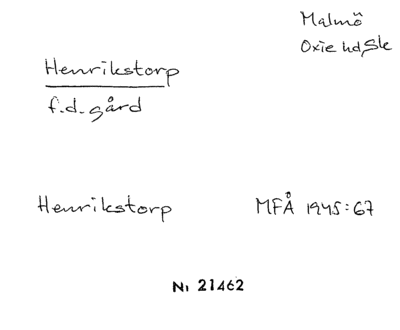 Malmö
Oxie hd, Sk
Henrikstorp
f.d. gård
Henrikstorp MFÅ 1945:67
Ni 21462